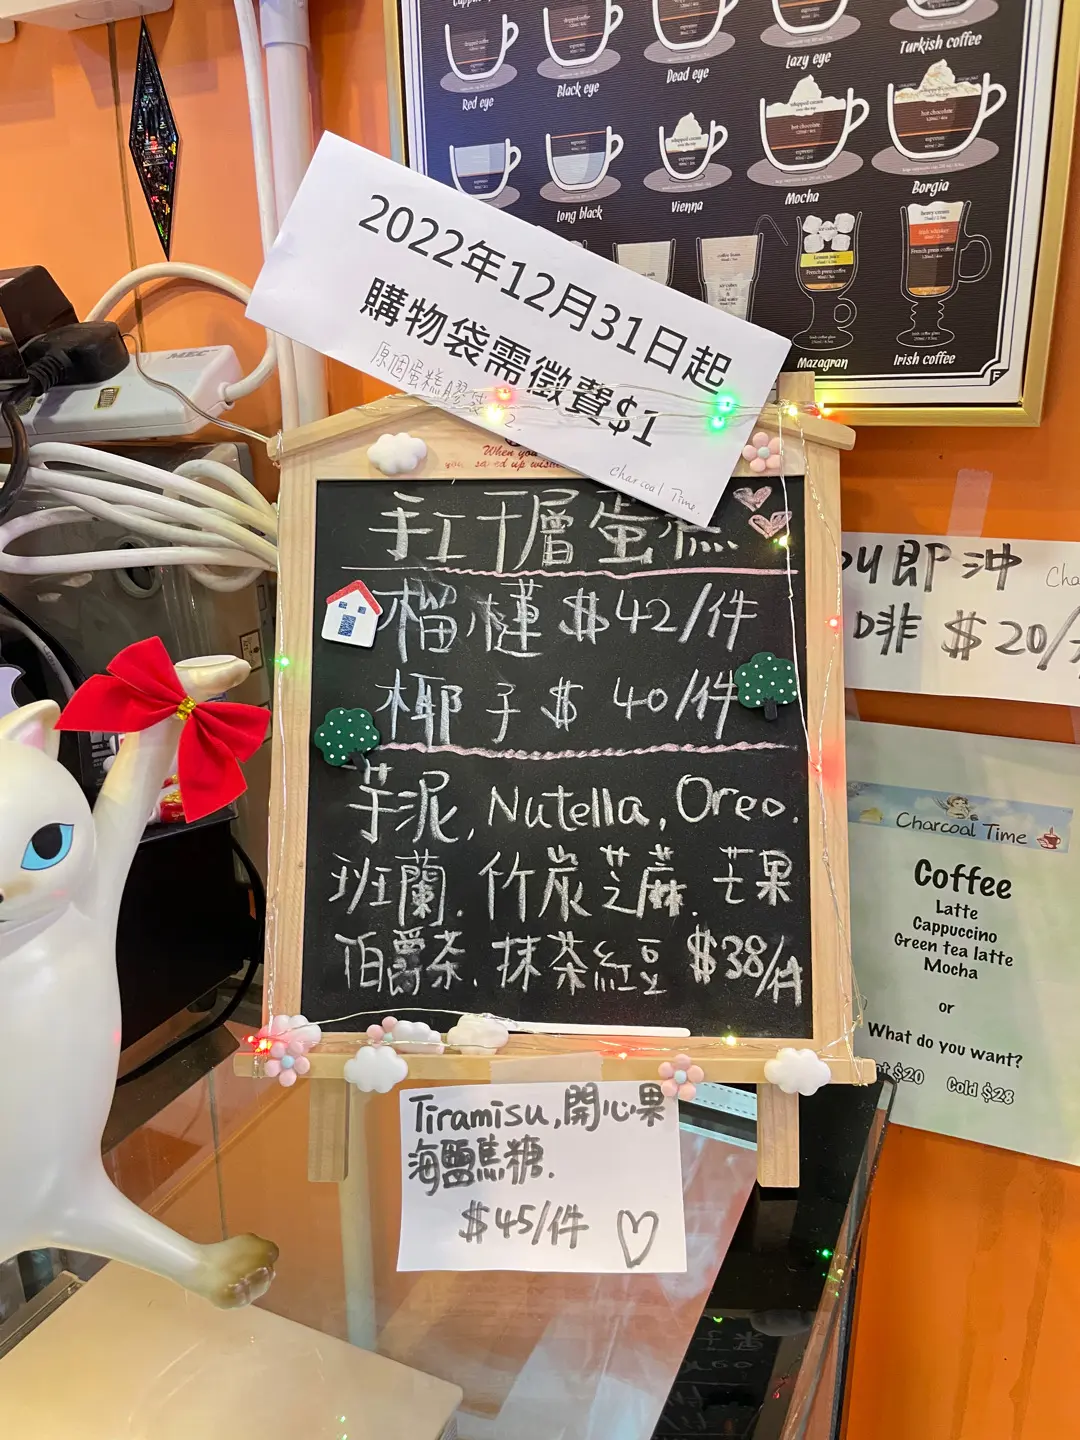 Turkish coffee
Lazy eye
Dead eye
Black eye
Red eye
Borgia
Mocha
Vienna
long black
Mazagran
Irish coffee
2022年12月31日起
購物袋需徵費$1
原個蛋糕膠袋
2.
Charcoal Time.
When you
手工千層蛋糕
榴槤 $42/件
椰子 $ 40/件
芋泥, Nutella, Oreo.
班蘭. 竹炭芝蔴. 芒果
伯爵茶. 抹茶紅豆 $38/件
Tiramisu,開心果
海鹽焦糖.
$45/件
即沖
啡 $20/
Charcoal Time
Coffee
Latte
Cappuccino
Green tea latte
Mocha
or
What do you want?
$20 Cold $28